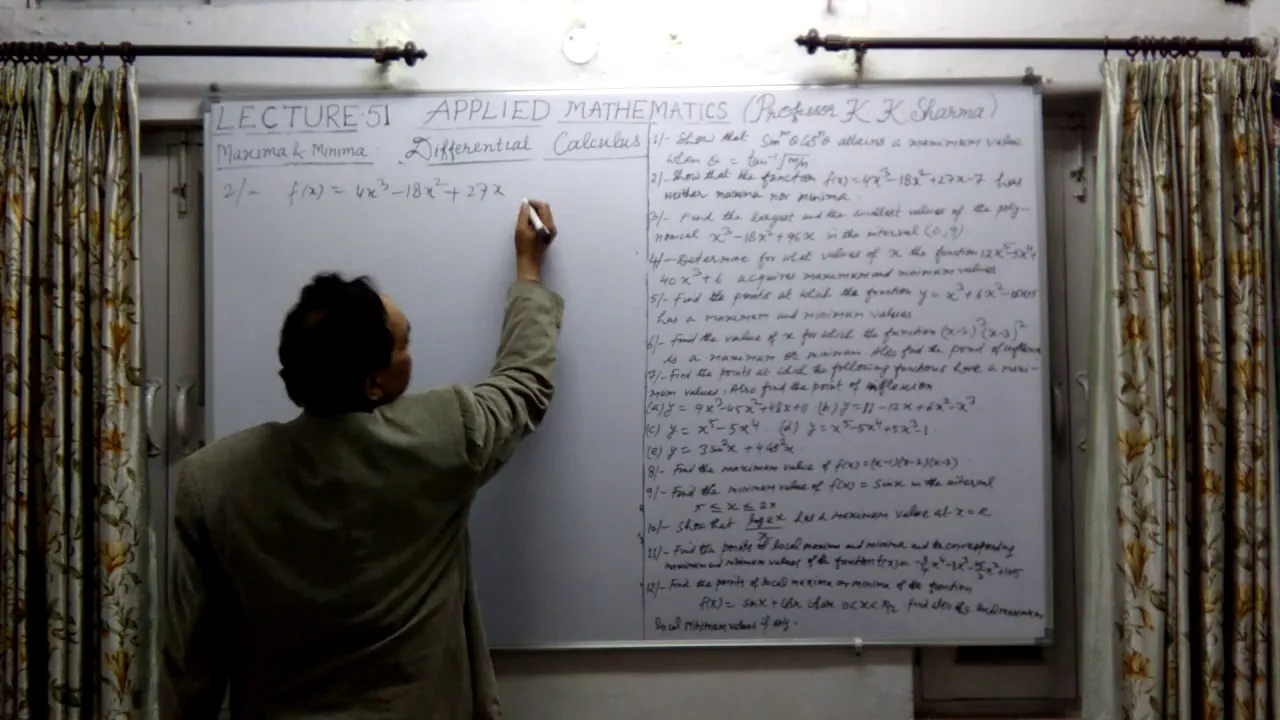 LECTURE-51 APPLIED MATHEMATICS (Professor K K Sharma)
Maxima & Minima Differential Calculus
2/- f(x) = 4x³ - 18x² + 27x
1/- Show that sinᵐθ cosⁿθ attains a maximum value
when θ = tan⁻¹√m/n.
2/- Show that the function f(x) = 4x³ - 18x² + 27x - 7 has
neither maxima nor minima.
3/- Find the largest and the smallest values of the poly-
nomial x³ - 18x² + 96x in the interval (0, 9)
4/- Determine for what values of x the function 12x⁵ - 5x⁴ +
40x³ + 6 acquires maximum and minimum values
5/- Find the points at which the function y = x³ + 6x² - 15x + 5
has a maximum and minimum values
6/- Find the value of x for which the function (x-2)³(x-3)²
is a maximum or minimum. Also find the point of inflexion
7/- Find the points at which the following functions have a maxi-
mum values. Also find the point of inflexion
(a) y = 9x³ - 45x² + 48x + 11 (b) y = 11 - 12x + 6x² - x³.
(c) y = x⁵ - 5x⁴. (d) y = x⁵ - 5x⁴ + 5x³ - 1.
(e) y = 3 sin²x + 4 cos²x.
8/- Find the maximum value of f(x) = (x-1)(x-2)(x-3)
9/- Find the minimum value of f(x) = sinx in the interval
π ≤ x ≤ 2π
10/- Show that log x / x has a maximum value at x = e
11/- Find the points of local maxima and minima and the corresponding
maximum and minimum values of the function f(x) =
12/- Find the points of local maxima or minima of the function
f(x) = sinx + cosx when 0 < x < π/2. Find also the local maximum,
local minimum values if any.